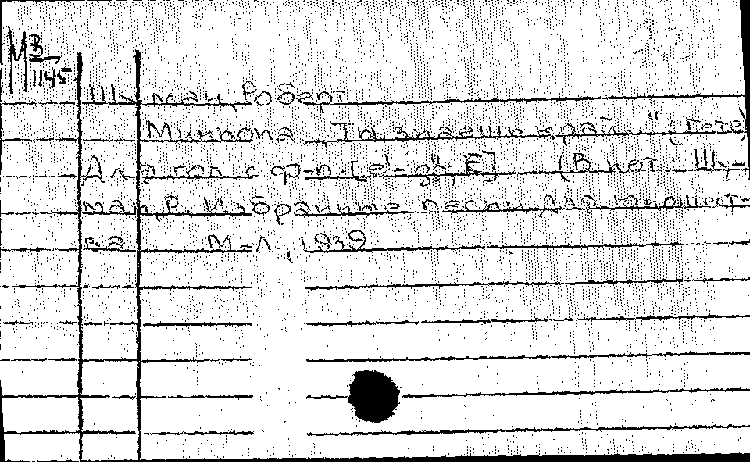 М В/1145
Шуман, Роберт
Миньона „Ты знаешь край" (Гете)
Для гол. с ф-п. [e¹-gis²; E] (В кн.: Шу-
ман, Р. Избранные песни для юношест-
ва М-Л, 1939